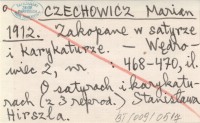 CZECHOWICZ Marian
1912. Zakopane w satyrze
i karykaturze. — Wędro-
wiec 2, nr : 468-470, il.
O satyrach i karykatu-
rach (z 3 reprod.) Stanisława
Hirszla.